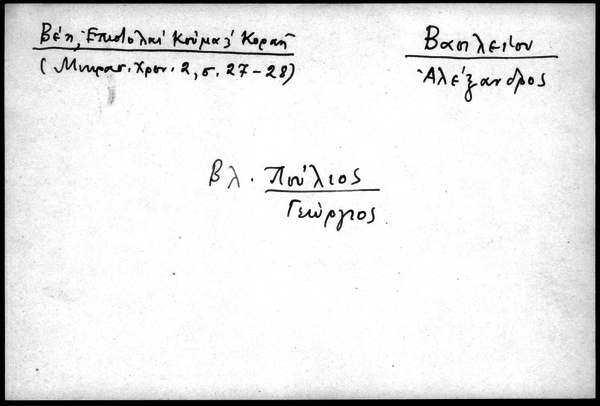 Βέη, Ἐπιστολαί Κούμα, Κοραῆ
(Μικρασ. Χρον. 2, σ. 27-28)
Βασιλείου
Ἀλέξανδρος
Βλ. Πούλιος
Γεώργιος